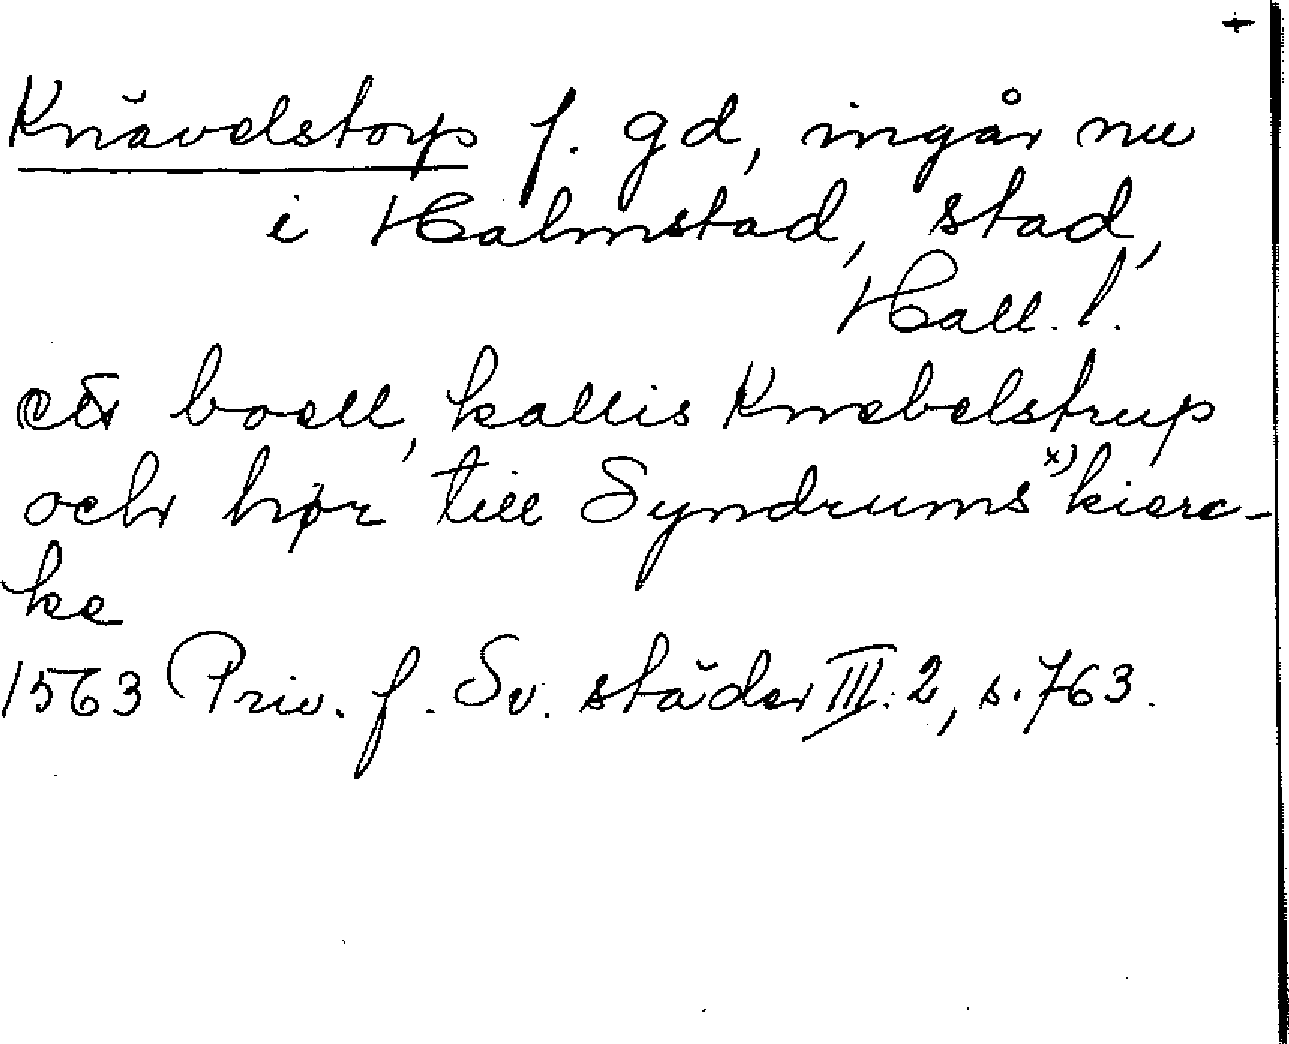 +
Knävelstorp f. gd, ingår nu
i Halmstad, stad,
Hall. l.
ett boell, kallis Knebelstrup
och hør till Syndrums x) kierc-
ke
1563 Priv. f. Sv. städer III:2, s. 763.